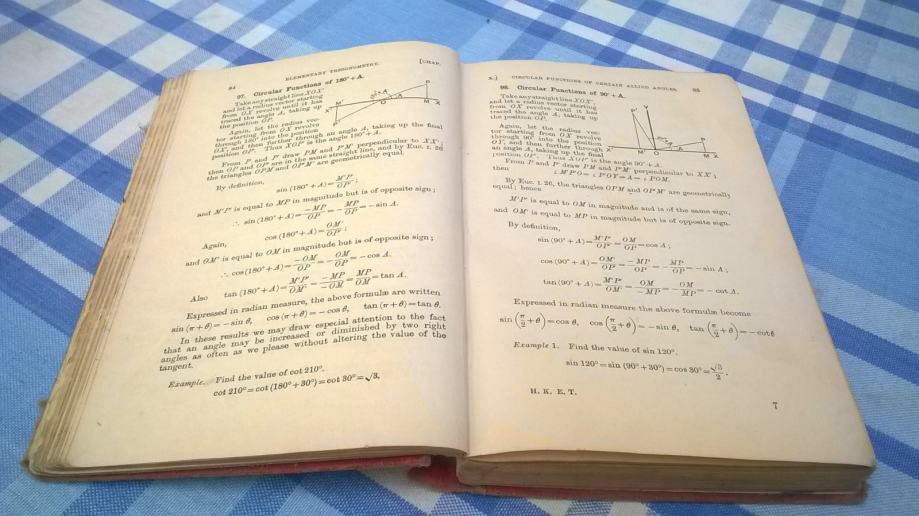 84 ELEMENTARY TRIGONOMETRY. [CHAP.
97. Circular Functions of 180° + A.
Take any straight line XOX',
and let a radius vector starting
from OX revolve until it has
traced the angle A, taking up
the position OP.
Again, let the radius vec-
tor starting from OX revolve
through 180° into the position
OX', and then further through an angle A, taking up the final
position OP'. Thus XOP' is the angle 180° + A.
From P and P' draw PM and P'M' perpendicular to XX';
then OP and OP' are in the same straight line, and by Euc. I. 26
the triangles OPM and OP'M' are geometrically equal.
By definition,
sin (180° + A) = M'P'/OP';
and M'P' is equal to MP in magnitude but is of opposite sign;
∴ sin (180° + A) = -MP/OP = -MP/OP = -sin A.
Again, cos (180° + A) = OM'/OP';
and OM' is equal to OM in magnitude but is of opposite sign;
∴ cos (180° + A) = -OM/OP = -OM/OP = -cos A.
Also tan (180° + A) = M'P'/OM' = -MP/-OM = MP/OM = tan A.
Expressed in radian measure, the above formulæ are written
sin (π + θ) = -sin θ, cos (π + θ) = -cos θ, tan (π + θ) = tan θ.
In these results we may draw especial attention to the fact
that an angle may be increased or diminished by two right
angles as often as we please without altering the value of the
tangent.
Example. Find the value of cot 210°.
cot 210° = cot (180° + 30°) = cot 30° = √3.
X.] CIRCULAR FUNCTIONS OF CERTAIN ALLIED ANGLES. 85
98. Circular Functions of 90° + A.
Take any straight line XOX',
and let a radius vector starting
from OX revolve until it has
traced the angle A, taking up
the position OP.
Again, let the radius vec-
tor starting from OX revolve
through 90° into the position
OY, and then further through
an angle A, taking up the final
position OP'. Thus XOP' is the angle 90° + A.
From P and P' draw PM and P'M' perpendicular to XX';
then
∠M'P'O = ∠P'OY = A = ∠POM.
By Euc. I. 26, the triangles OPM and OP'M' are geometrically
equal; hence
M'P' is equal to OM in magnitude and is of the same sign,
and OM' is equal to MP in magnitude but is of opposite sign.
By definition,
sin (90° + A) = M'P'/OP' = OM/OP = cos A;
cos (90° + A) = OM'/OP' = -MP/OP = -MP/OP = -sin A;
tan (90° + A) = M'P'/OM' = OM/-MP = -OM/MP = -cot A.
Expressed in radian measure the above formulæ become
sin (π/2 + θ) = cos θ, cos (π/2 + θ) = -sin θ, tan (π/2 + θ) = -cot θ
Example 1. Find the value of sin 120°.
sin 120° = sin (90° + 30°) = cos 30° = √3/2.
H. K. E. T.
7